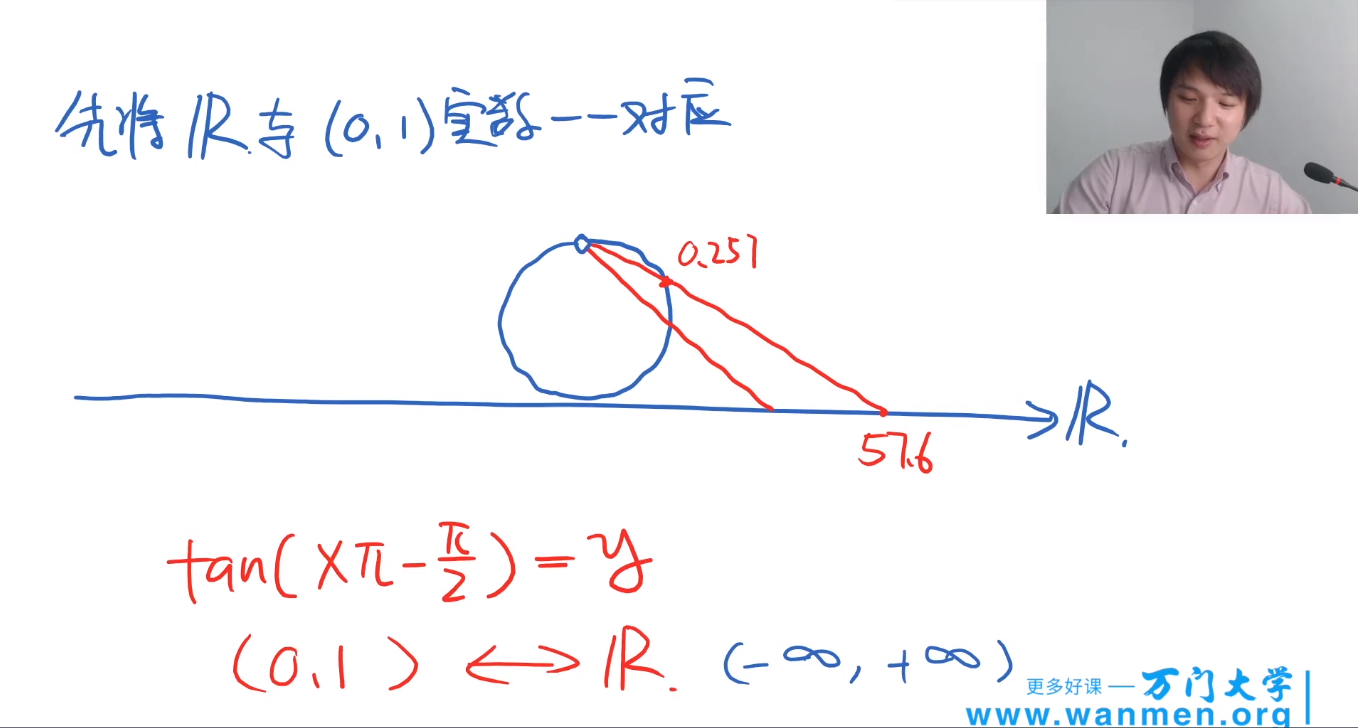 先将 ℝ 与 (0,1) 实数一一对应
0.257
ℝ.
57.6
tan(xπ-π/2)=y
(0,1) ↔ ℝ. (-∞,+∞)
更多好课 — 万门大学
www.wanmen.org